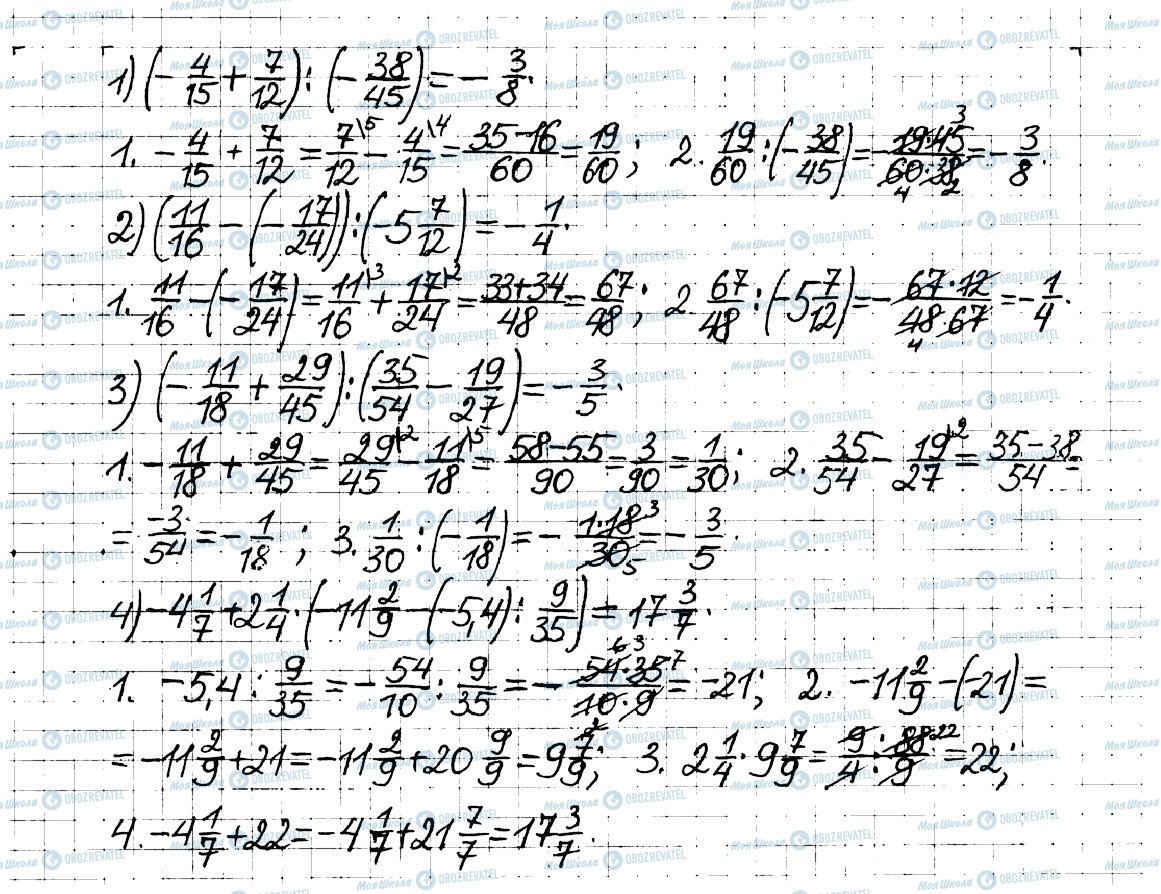 1) (-4/15 + 7/12) : (-38/45) = -3/8.
1. -4/15 + 7/12 = 7/12\5 - 4/15\4 = (35-16)/60 = 19/60; 2. 19/60 : (-38/45) = -(19·45 3)/(60 4·38 2) = -3/8.
2) (11/16 - (-17/24)) : (-5 7/12) = -1/4.
1. 11/16 - (-17/24) = 11/16\3 + 17/24\2 = (33+34)/48 = 67/48; 2. 67/48 : (-5 7/12) = -(67·12)/(48 4·67) = -1/4.
3) (-11/18 + 29/45) : (35/54 - 19/27) = -3/5.
1. -11/18 + 29/45 = 29/45\2 - 11/18\5 = (58-55)/90 = 3/90 = 1/30; 2. 35/54 - 19/27\2 = (35-38)/54 =
= -3/54 = -1/18; 3. 1/30 : (-1/18) = -(1·18 3)/(30 5) = -3/5.
4) -4 1/7 + 2 1/4 · (-11 2/9 - (-5,4) : 9/35) = 17 3/7.
1. -5,4 : 9/35 = -54/10 : 9/35 = -(54 6 3·35 7)/(10 2·9) = -21; 2. -11 2/9 - (-21) =
= -11 2/9 + 21 = -11 2/9 + 20 9/9 = 9 7/9; 3. 2 1/4 · 9 7/9 = 9/4 · 88 22/9 = 22;
4. -4 1/7 + 22 = -4 1/7 + 21 7/7 = 17 3/7.
Моя Школа OBOZREVATEL